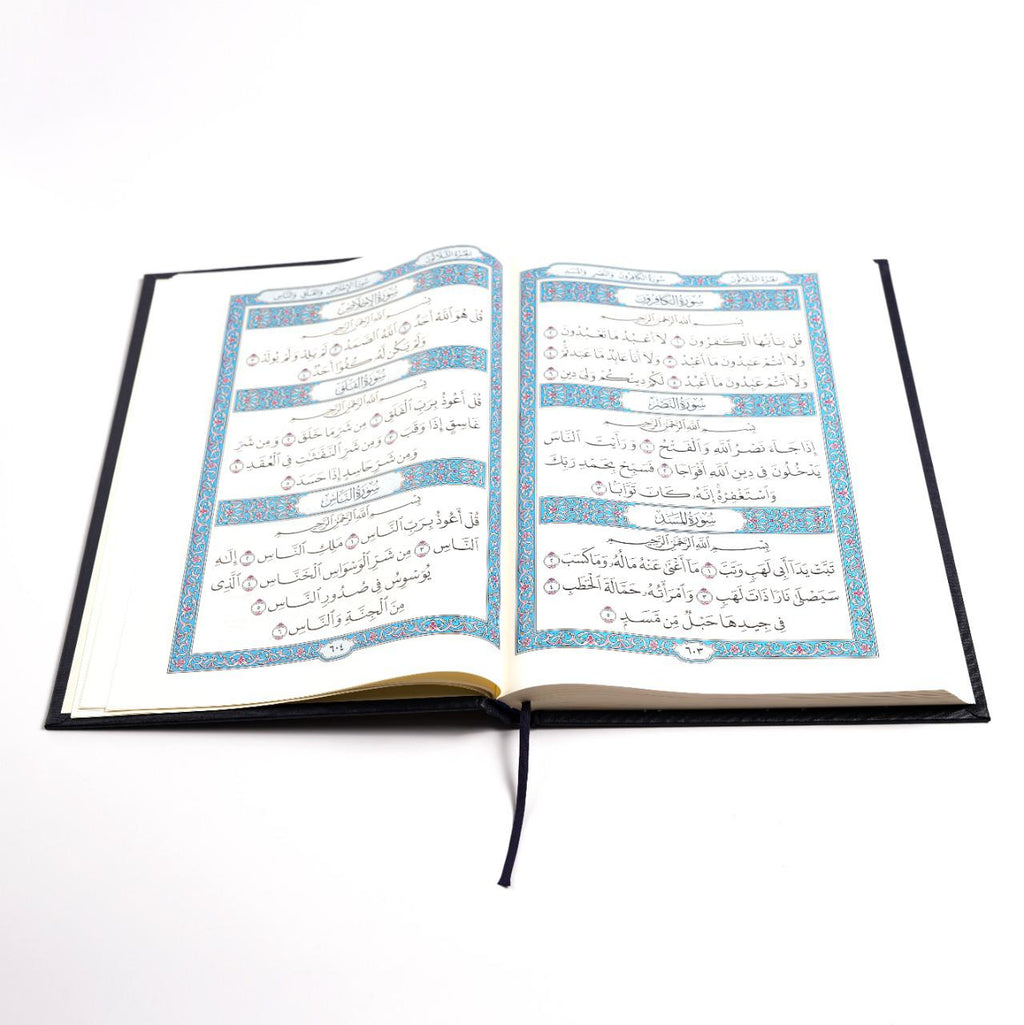 الجزء الثلاثون
سورة الكافرون والنصر والمسد
سُورَةُ الكَافِرُونَ
بِسْمِ ٱللَّهِ ٱلرَّحْمَٰنِ ٱلرَّحِيمِ
قُلْ يَٰٓأَيُّهَا ٱلْكَٰفِرُونَ ١ لَآ أَعْبُدُ مَا تَعْبُدُونَ ٢
وَلَآ أَنتُمْ عَٰبِدُونَ مَآ أَعْبُدُ ٣ وَلَآ أَنَا۠ عَابِدٌ مَّا عَبَدتُّمْ ٤
وَلَآ أَنتُمْ عَٰبِدُونَ مَآ أَعْبُدُ ٥ لَكُمْ دِينُكُمْ وَلِيَ دِينِ ٦
سُورَةُ النَّصْرِ
بِسْمِ ٱللَّهِ ٱلرَّحْمَٰنِ ٱلرَّحِيمِ
إِذَا جَآءَ نَصْرُ ٱللَّهِ وَٱلْفَتْحُ ١ وَرَأَيْتَ ٱلنَّاسَ
يَدْخُلُونَ فِي دِينِ ٱللَّهِ أَفْوَاجًا ٢ فَسَبِّحْ بِحَمْدِ رَبِّكَ
وَٱسْتَغْفِرْهُ إِنَّهُۥ كَانَ تَوَّابًۢا ٣
سُورَةُ المَسَدِ
بِسْمِ ٱللَّهِ ٱلرَّحْمَٰنِ ٱلرَّحِيمِ
تَبَّتْ يَدَآ أَبِي لَهَبٍ وَتَبَّ ١ مَآ أَغْنَىٰ عَنْهُ مَالُهُۥ وَمَا كَسَبَ ٢
سَيَصْلَىٰ نَارًا ذَاتَ لَهَبٍ ٣ وَٱمْرَأَتُهُۥ حَمَّالَةَ ٱلْحَطَبِ ٤
فِي جِيدِهَا حَبْلٌ مِّن مَّسَدٍۭ ٥
٦٠٣
الجزء الثلاثون
سورة الإخلاص والفلق والناس
سُورَةُ الإِخْلَاصِ
بِسْمِ ٱللَّهِ ٱلرَّحْمَٰنِ ٱلرَّحِيمِ
قُلْ هُوَ ٱللَّهُ أَحَدٌ ١ ٱللَّهُ ٱلصَّمَدُ ٢ لَمْ يَلِدْ وَلَمْ يُولَدْ ٣
وَلَمْ يَكُن لَّهُۥ كُفُوًا أَحَدٌۢ ٤
سُورَةُ الفَلَقِ
بِسْمِ ٱللَّهِ ٱلرَّحْمَٰنِ ٱلرَّحِيمِ
قُلْ أَعُوذُ بِرَبِّ ٱلْفَلَقِ ١ مِن شَرِّ مَا خَلَقَ ٢ وَمِن شَرِّ
غَاسِقٍ إِذَا وَقَبَ ٣ وَمِن شَرِّ ٱلنَّفَّٰثَٰتِ فِي ٱلْعُقَدِ ٤
وَمِن شَرِّ حَاسِدٍ إِذَا حَسَدَ ٥
سُورَةُ النَّاسِ
بِسْمِ ٱللَّهِ ٱلرَّحْمَٰنِ ٱلرَّحِيمِ
قُلْ أَعُوذُ بِرَبِّ ٱلنَّاسِ ١ مَلِكِ ٱلنَّاسِ ٢ إِلَٰهِ
ٱلنَّاسِ ٣ مِن شَرِّ ٱلْوَسْوَاسِ ٱلْخَنَّاسِ ٤ ٱلَّذِي
يُوَسْوِسُ فِي صُدُورِ ٱلنَّاسِ ٥
مِنَ ٱلْجِنَّةِ وَٱلنَّاسِ ٦
٦٠٤